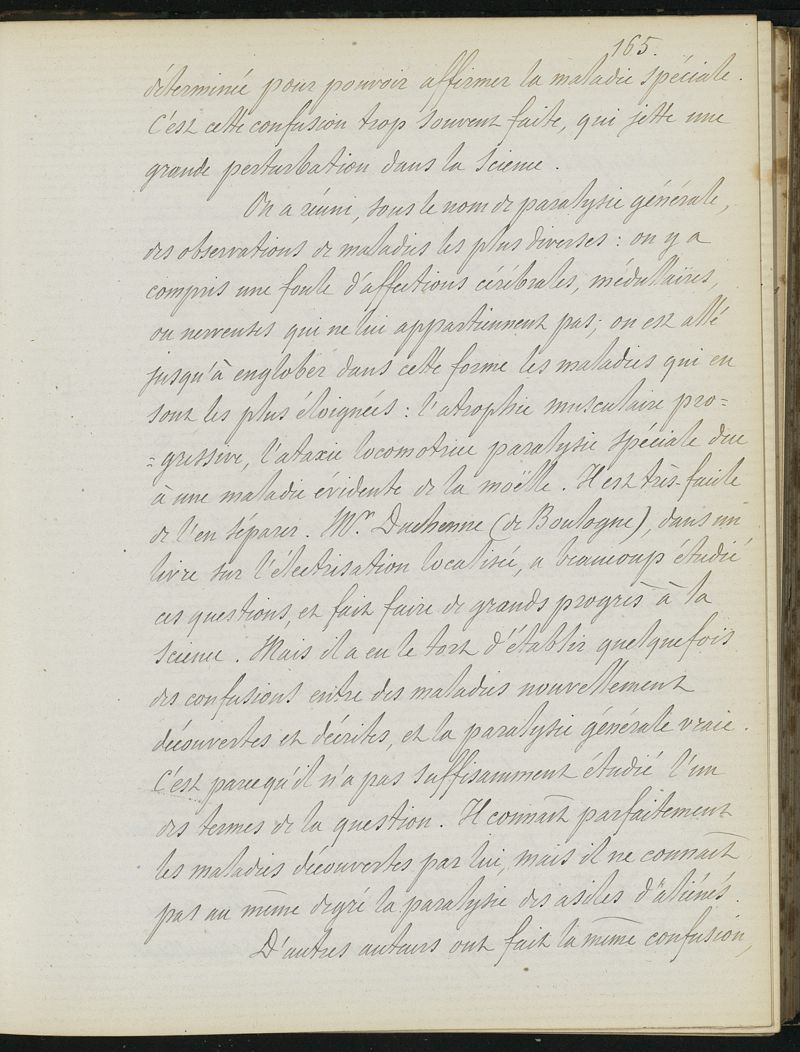 165.
déterminée pour pouvoir affirmer la maladie spéciale.
C'est cette confusion trop souvent faite, qui jette une
grande perturbation dans la science.
On a réuni, sous le nom de paralysie générale,
des observations de maladies les plus diverses : on y a
compris une foule d'affections cérébrales, médullaires,
ou nerveuses qui ne lui appartiennent pas; on est allé
jusqu'à englober dans cette forme les maladies qui en
sont les plus éloignées : l'atrophie musculaire pro=
=gressive, l'ataxie locomotrice paralysie spéciale due
à une maladie évidente de la moëlle. Il est très-facile
de l'en séparer. Mr. Duchenne (de Boulogne), dans un
livre sur l'électrisation localisée, a beaucoup étudié
ces questions, et fait faire de grands progrès à la
science. Mais il a eu le tort d'établir quelquefois
des confusions entre des maladies nouvellement
découvertes et décrites, et la paralysie générale vraie.
C'est parcequ'il n'a pas suffisamment étudié l'un
des termes de la question. Il connaît parfaitement
les maladies découvertes par lui, mais il ne connaît
pas au même degré la paralysie des asiles d'aliénés.
D'autres auteurs ont fait la même confusion,